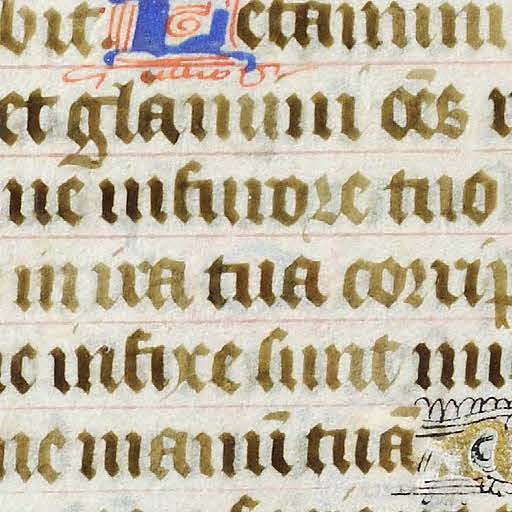 bit. Letamini
et glamini oēs
ne infurore tuo
in ira tua corrip
infixe sunt mi
me manū tuā